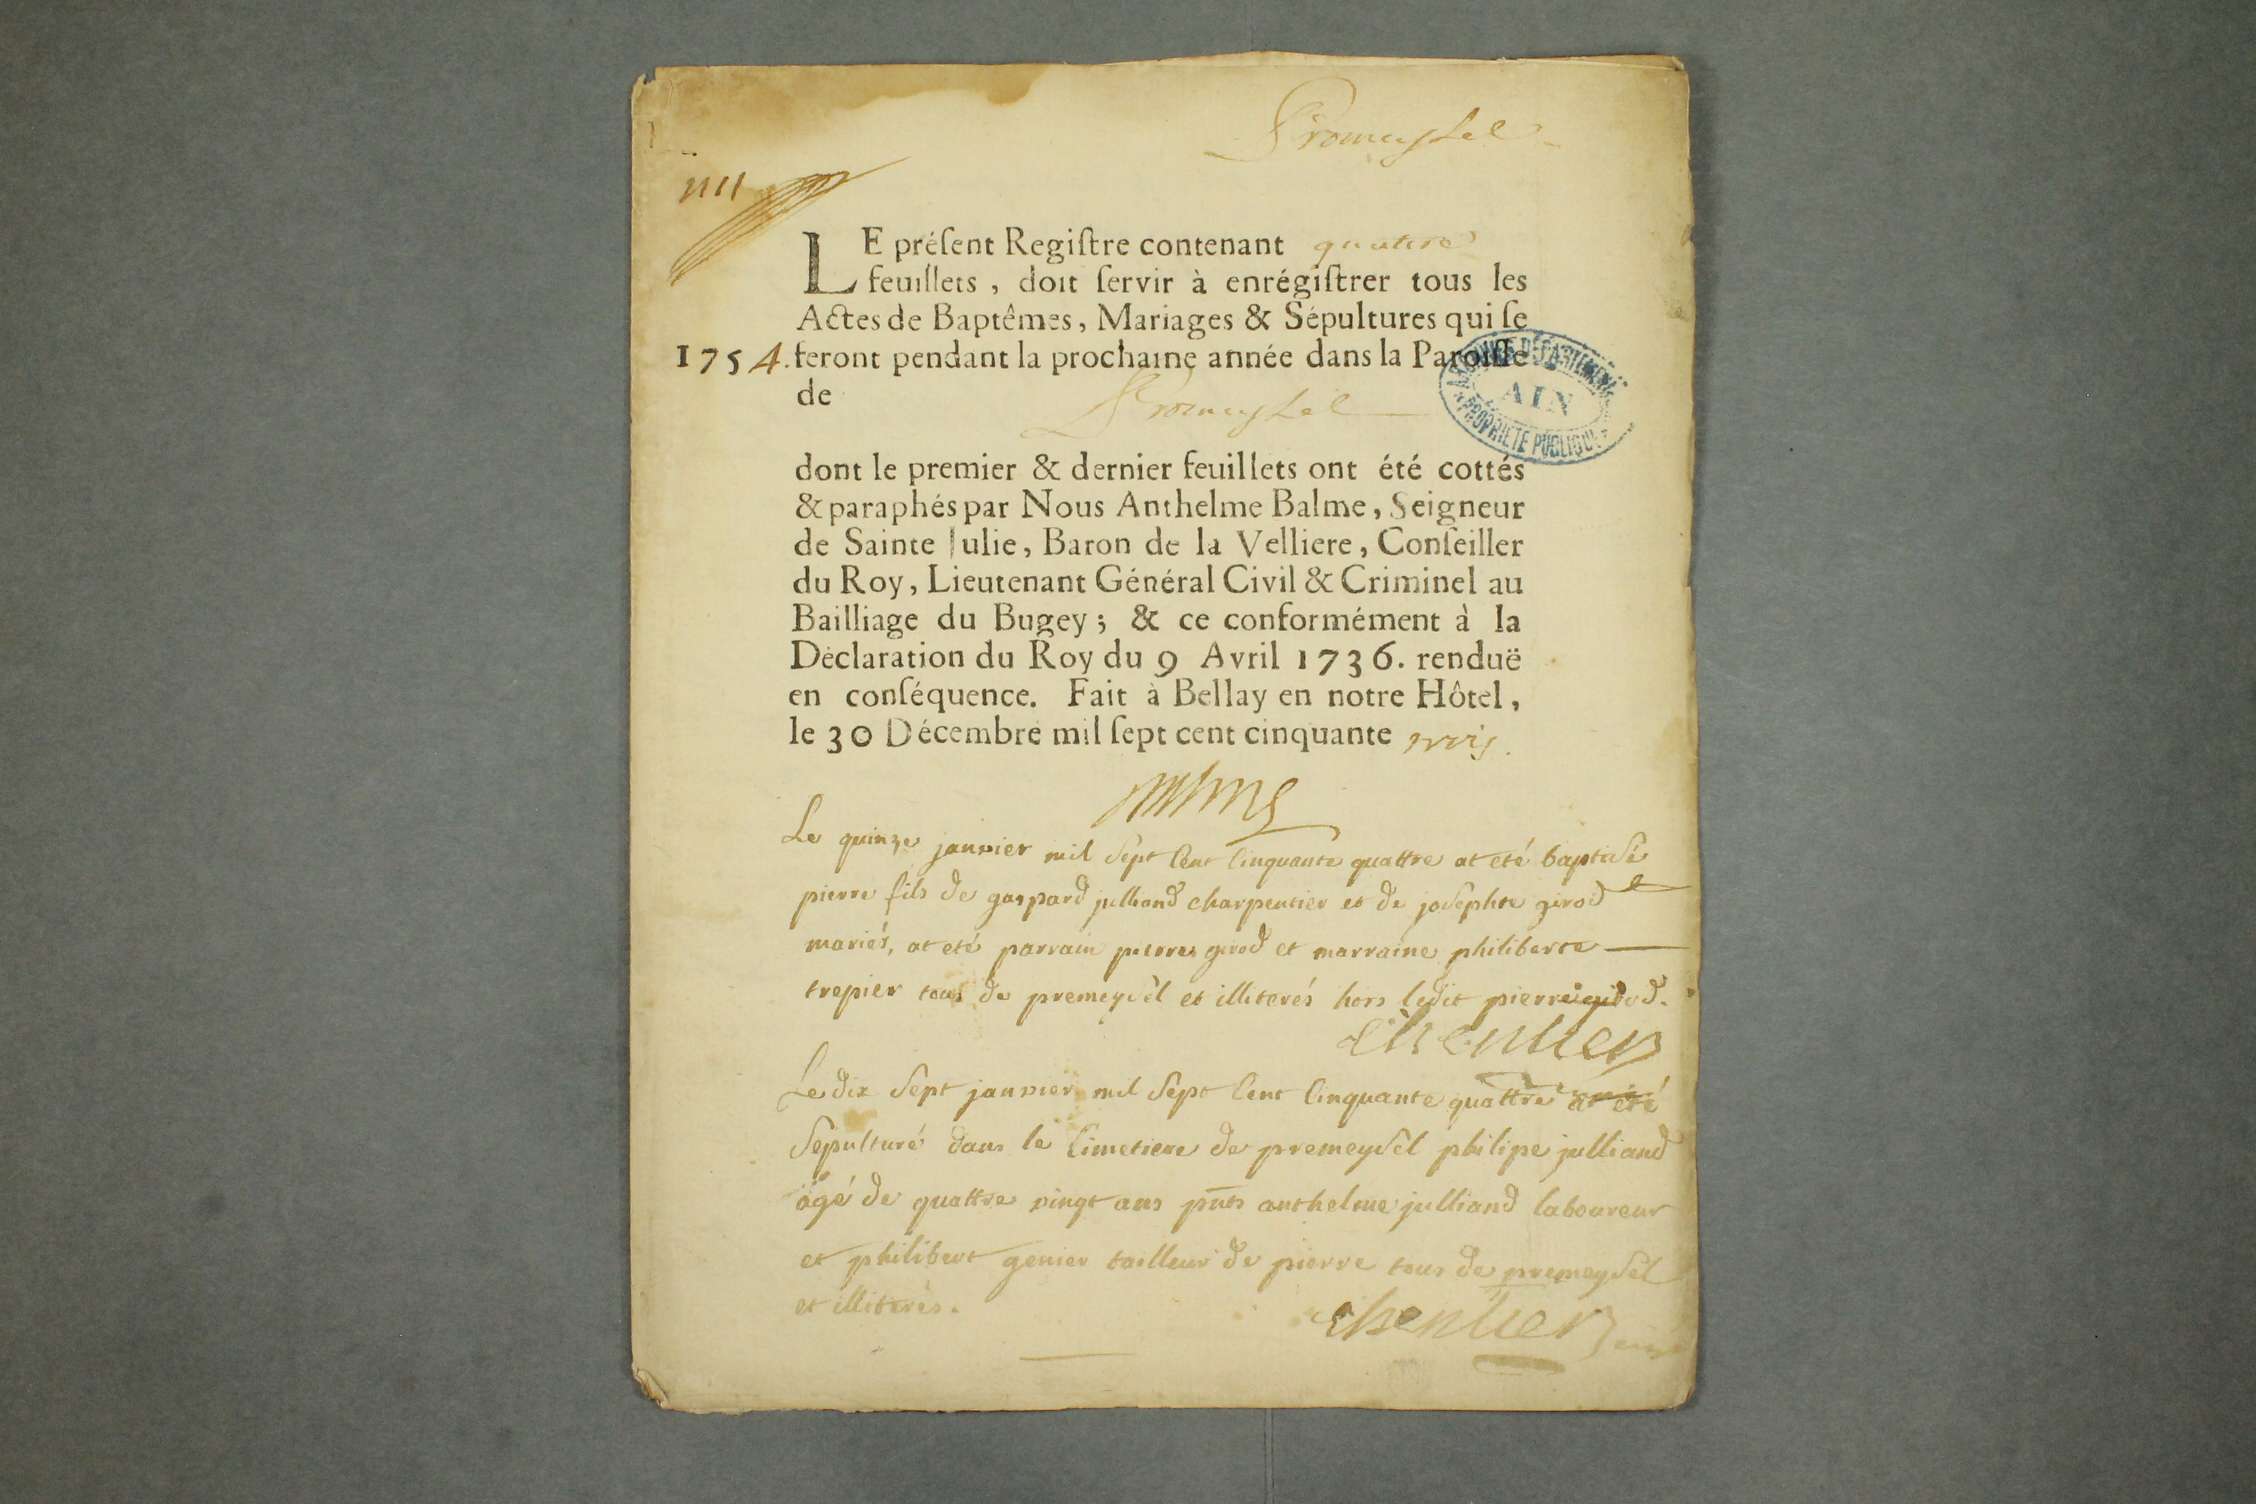 Premeysel
LE préſent Regiſtre contenant quatre
feuillets, doit ſervir à enrégiſtrer tous les
Actes de Baptêmes, Mariages & Sépultures qui ſe
1754. feront pendant la prochaine année dans la Paroiſſe
de Premeysel
ARCHIVES DÉPARTEMENTALES
AIN
PROPRIÉTÉ PUBLIQUE
dont le premier & dernier feuillets ont été cottés
& paraphés par Nous Anthelme Balme, Seigneur
de Sainte Julie, Baron de la Velliere, Conſeiller
du Roy, Lieutenant Général Civil & Criminel au
Bailliage du Bugey; & ce conformément à la
Déclaration du Roy du 9 Avril 1736. renduë
en conſéquence. Fait à Bellay en notre Hôtel,
le 30 Décembre mil ſept cent cinquante trois.
Le quinze janvier mil sept cent cinquante quattre at eté baptisé
pierre fils de gaspard julliand charpentier et de josephte girod
mariés, at eté parrain pierre girod et marraine philiberte
trepier tous de premeysel et illiterés hors ledit pierre girod.
Le dix sept janvier mil sept cent cinquante quattre at eté
sepulturé dans le cimetiere de premeysel philipe julliand
agé de quattre vingt ans pnts anthelme julliand laboureur
et philibert genier tailleur de pierre tous de premeysel
et illiterés.